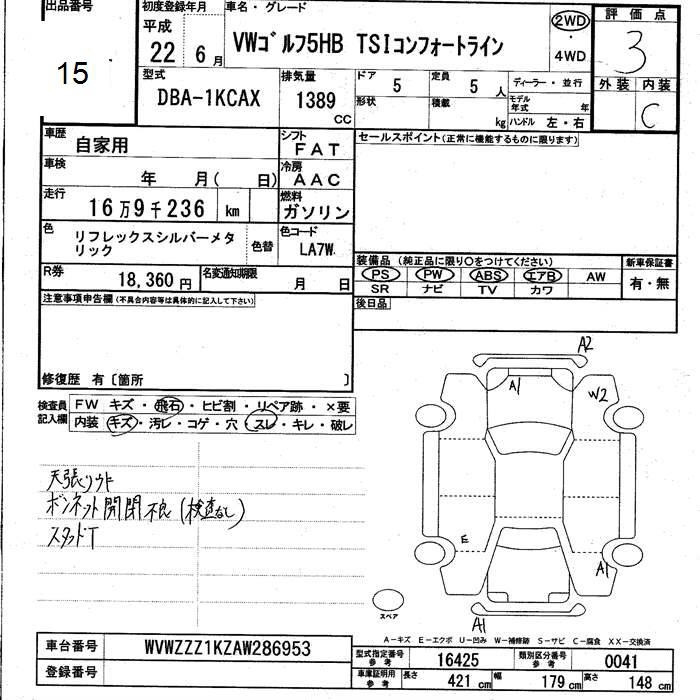 出品番号
15
初度登録年月
平成
22 6月
車名・グレード
VWゴルフ5HB TSIコンフォートライン
2WD
・
4WD
評価点
3
外装 内装
C
型式
DBA-1KCAX
排気量
1389
CC
ドア 5
形状
定員 5人
積載 kg
ディーラー・並行
モデル年式 年
ハンドル 左・右
車歴
自家用
シフト
FAT
セールスポイント(正常に機能するものに限ります)
車検
年 月( 日)
冷房
AAC
走行
16万9千236 km
燃料
ガソリン
色
リフレックスシルバーメタ
リック
色替
色コード
LA7W
R券
18,360円
名変通知期限
月 日
装備品(純正品に限り○をつけてください)
PS PW ABS エアB AW
SR ナビ TV カワ
新車保証書
有・無
後日品
注意事項申告欄(不具合内容等は具体的に記入して下さい)
修復歴 有〔箇所 〕
検査員
記入欄
FW キズ・飛石・ヒビ割・リペア跡・×要
内装 キズ・汚レ・コゲ・穴・スレ・キレ・破レ
天張りウキ
ボンネット開閉不良(検査なし)
スタッドT
A2
A1
W2
E
A1
A1
スペア
A-キズ E-エクボ U-凹み W-補修跡 S-サビ C-腐食 XX-交換済
車台番号
WVWZZZ1KZAW286953
登録番号
型式指定番号
参考
16425
類別区分番号
参考
0041
車庫証明用
参考
長さ 421cm 幅 179cm 高さ 148cm